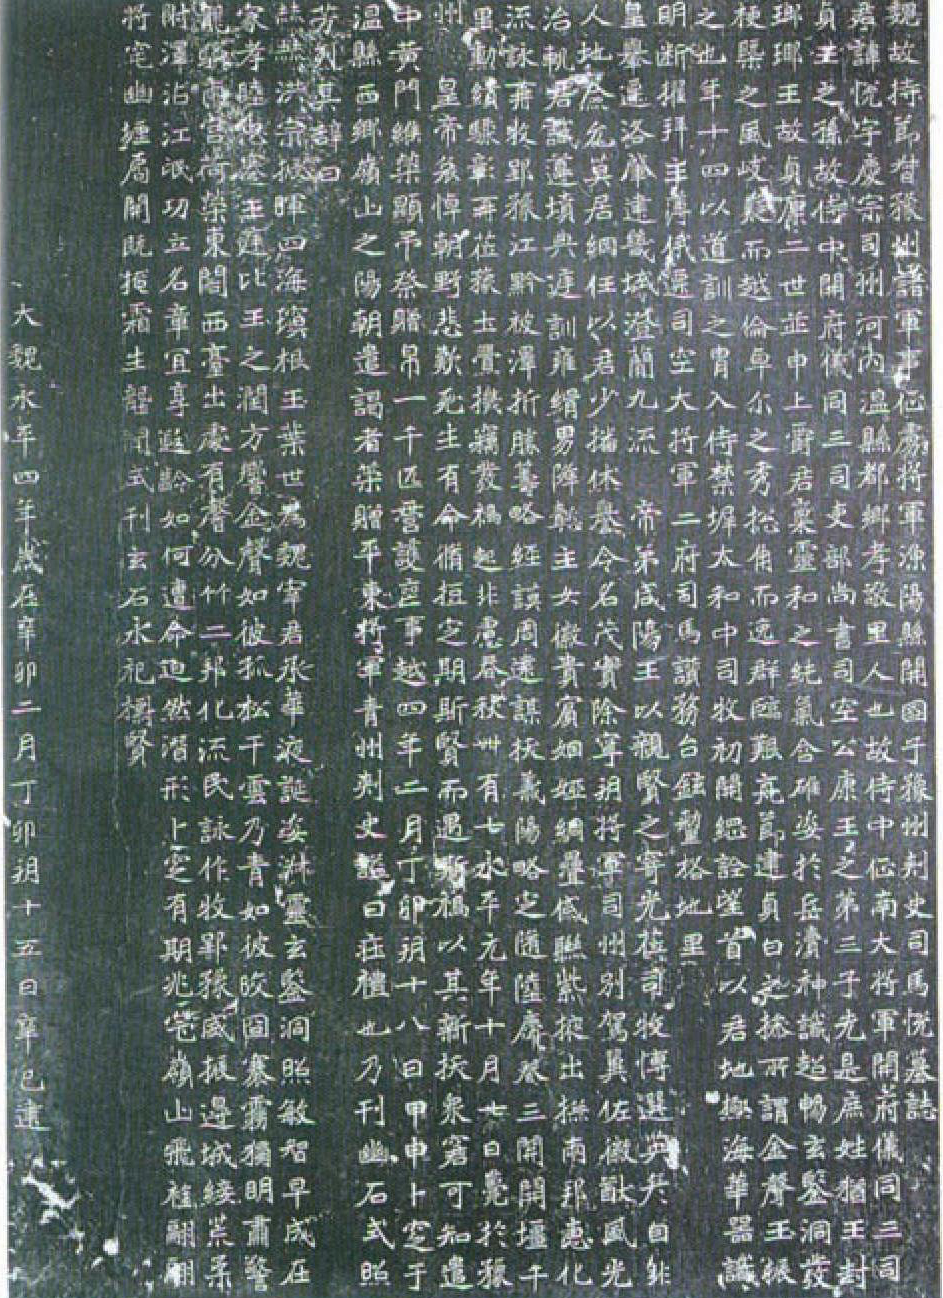 魏故持節督豫州諸軍事征虜將軍漁陽縣開國子豫州刺史司馬悅墓誌
君諱悅字慶宗司州河內溫縣都鄉孝敬里人也故侍中征南大將軍開府儀同三司
貞王之孫故侍中開府儀同三司吏部尚書司空公康王之第三子先是庶姓猶王封
瑯瑘王故貞康二世並申上爵君稟靈和之純氣含雄姿於岳瀆神識超暢玄鑒洞發
梗槩之風岐嶷而越倫卓尒之秀捴角而逸群臨艱亮節建貞白之操所謂金聲玉振
之也年十四以道訓之胄入侍禁墀太和中司牧初開綱詮望首以君地極海華器識
明斷擢拜主簿俄遷司空大將軍二府司馬讚務台鉉聲格地里
皇轝遷洛肇建畿域澄簡九流　帝弟咸陽王以親賢之寄光莅司牧博選英彥自非
人地僉允莫居綱任以君少播休譽令名茂實除寧朔將軍司州別駕翼佐徽猷風光
治軌君識遵墳典庭訓雍緝男降懿主女徽貴賓姻婭綢疊戚聯紫掖出撫南邦惠化
流詠再牧郢豫江黔被澤折勝籌略經謨周遠謀扶義陽略定隨陸席卷三關開壃千
里勳績驟彰再莅豫土舋換竊發禍起非慮春秋卌有七永平元年十月七日薨於豫
州　皇帝矜悼朝野悲歎死生有命脩短定期斯賢而遇斯禍以其新抚衆窘可知遣
中黃門緱榮顯弔祭贈帛一千匹營護喪事越四年二月丁卯朔十八日甲申卜窆于
溫縣西鄉嶺山之陽朝遣謁者策贈平東將軍青州刺史諡曰莊禮也乃刊幽石式照
芳烈其辭曰
緜緜洪宗掞暉四海瓊根玉葉世為魏宰君承華液誕姿淋靈玄鑒洞照敏智早成在
家孝睦忠蹇王庭比王之潤方響金聲如彼孤松干雲乃青如彼皎固寨霧獨明肅警
龍驤南宮荷榮東閤西臺出處有聲分竹二邦化流民詠作牧郢豫威振邊城綏荒柔
附澤沾江氓功立名章宜享遐齡如何遭命迫然潛形卜窆有期兆宅嶺山飛旌翩翩
將宅幽壥扃開既掩霜生壟間式刊玄石永祀摽賢
大魏永平四年歲在辛卯二月丁卯朔十五日辛巳建